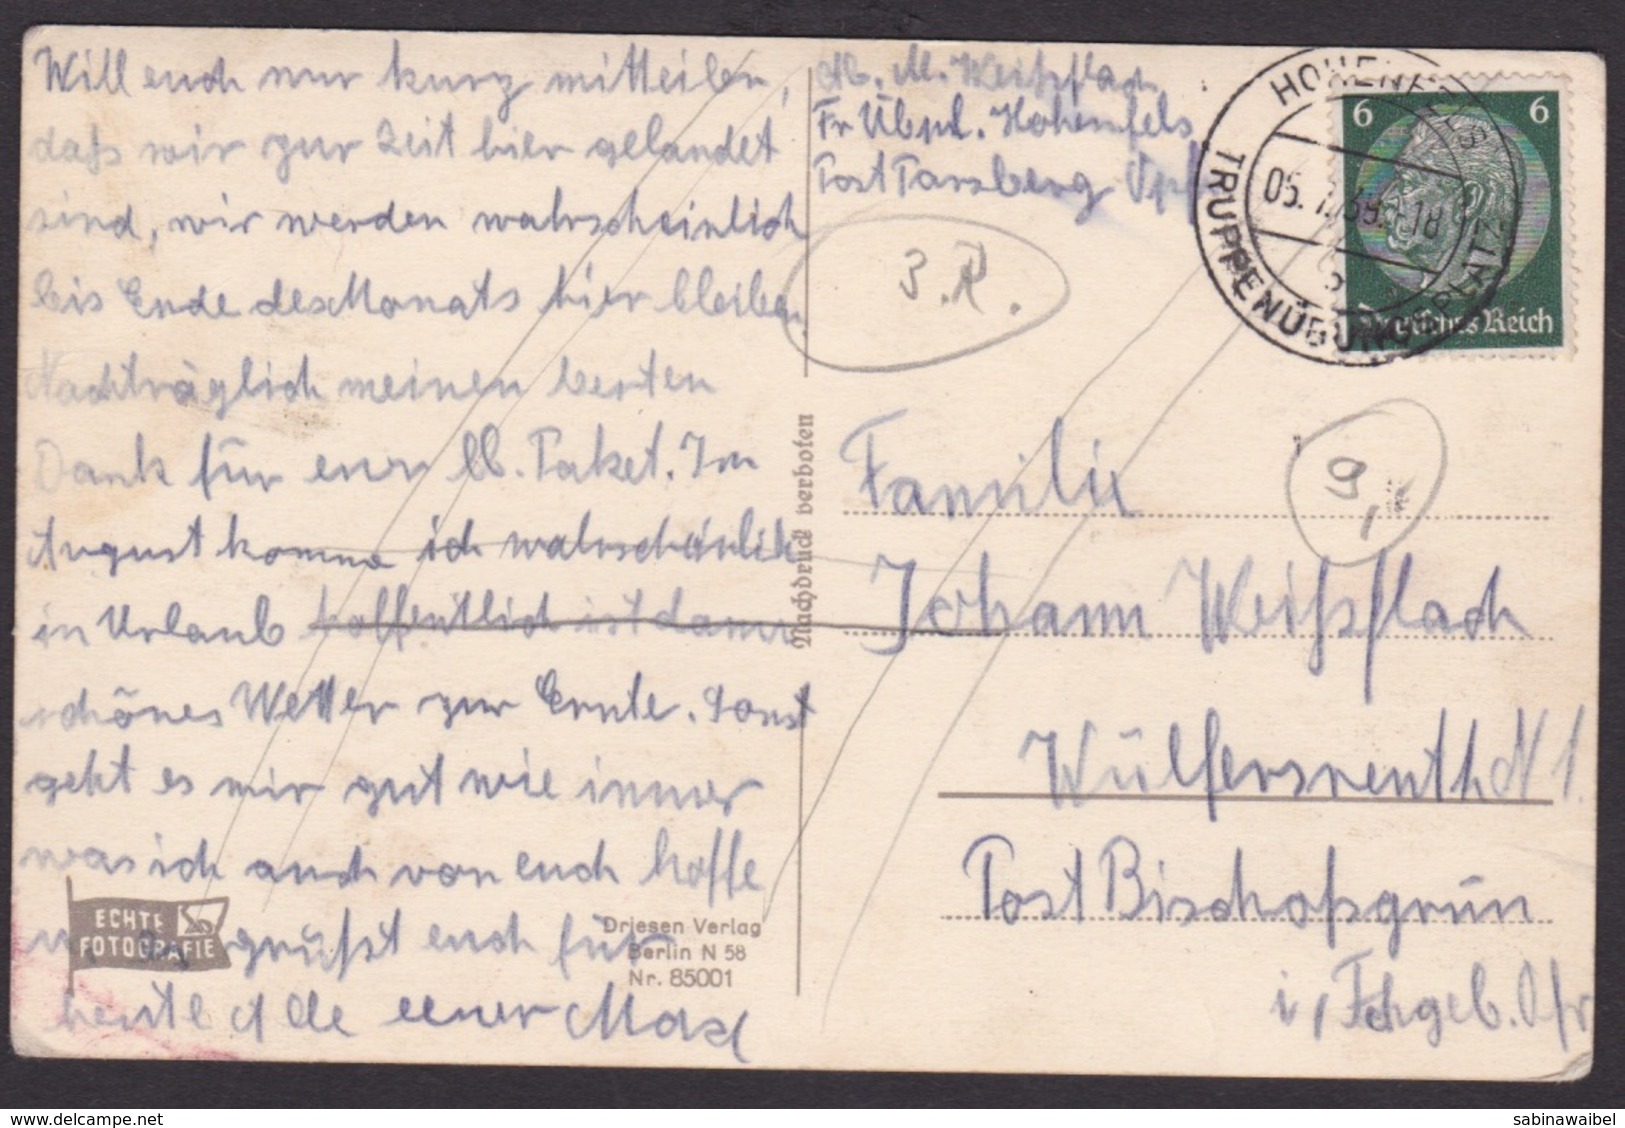 Will euch nur kurz mitteilen,
dafs wir zur Zeit hier gelandet
sind, wir werden wahrscheinlich
bis Ende des Monats hier bleiben.
Nachträglich meinen besten
Dank für euer lb. Paket. Im
August komme ich wahrscheinlich
in Urlaub hoffentlich ist dann
schönes Wetter zur Ernte. Sonst
geht es mir gut wie immer
was ich auch von euch hoffe
grüßt euch für
heute Alle euer Max
ECHTE
FOTOGRAFIE
Driesen Verlag
Berlin N 58
Nr. 85001
Nachdruck verboten
M. Weißflach
Tr Übpl. Hohenfels
Post Parsberg Opf
3.R.
HOHENFELS
TRUPPENÜBUNGSPLATZ
6 6
Deutsches Reich
9
Familie
Johann Weißflach
Wülfersreuth N 1.
Post Bischofsgrün
i, Fichgeb. Ofr
sabinawaibel